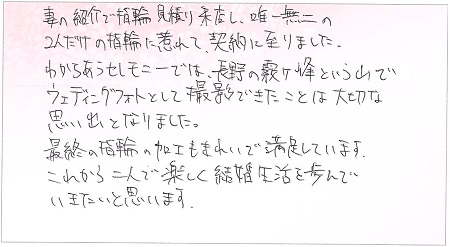 妻の紹介で指輪見積り来店し、唯一無二の
2人だけの指輪に惹れて、契約に至りました。
わかちあうセレモニーでは、長野の霧ヶ峰という山で
ウェディングフォトとして撮影できたことは大切な
思い出となりました。
最終の指輪の加工もきれいで満足しています。
これから二人で楽しく結婚生活を歩んで
いきたいと思います。